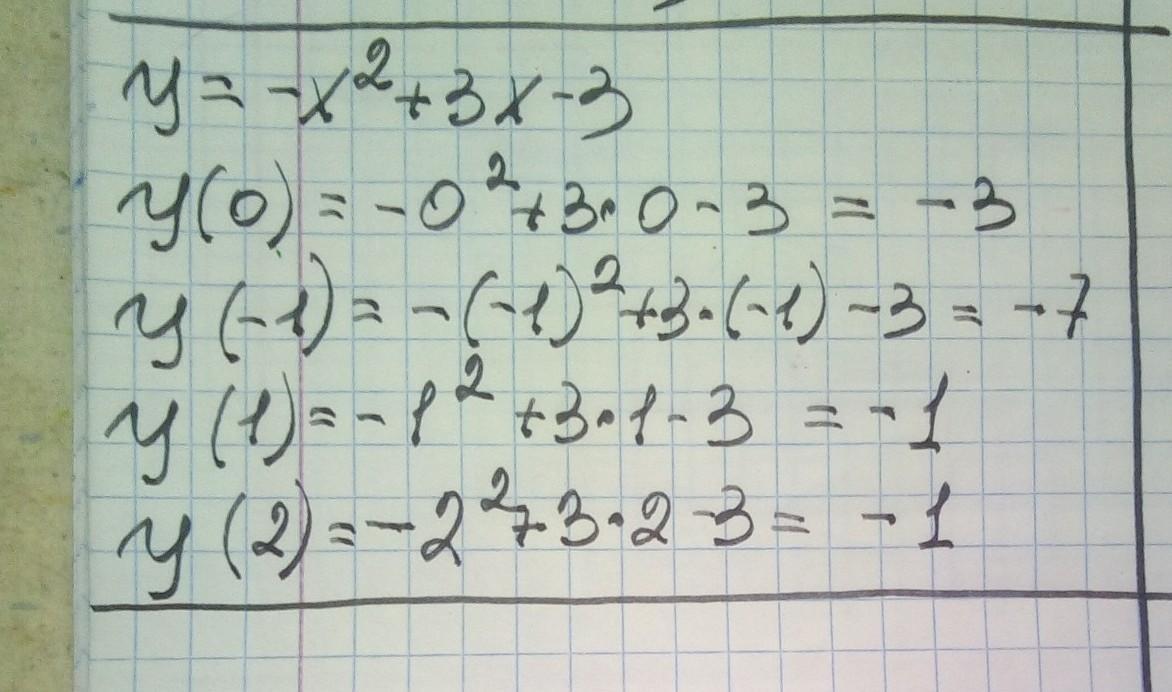 y = -x² + 3x - 3
y(0) = -0² + 3·0 - 3 = -3
y(-1) = -(-1)² + 3·(-1) - 3 = -7
y(1) = -1² + 3·1 - 3 = -1
y(2) = -2² + 3·2 - 3 = -1